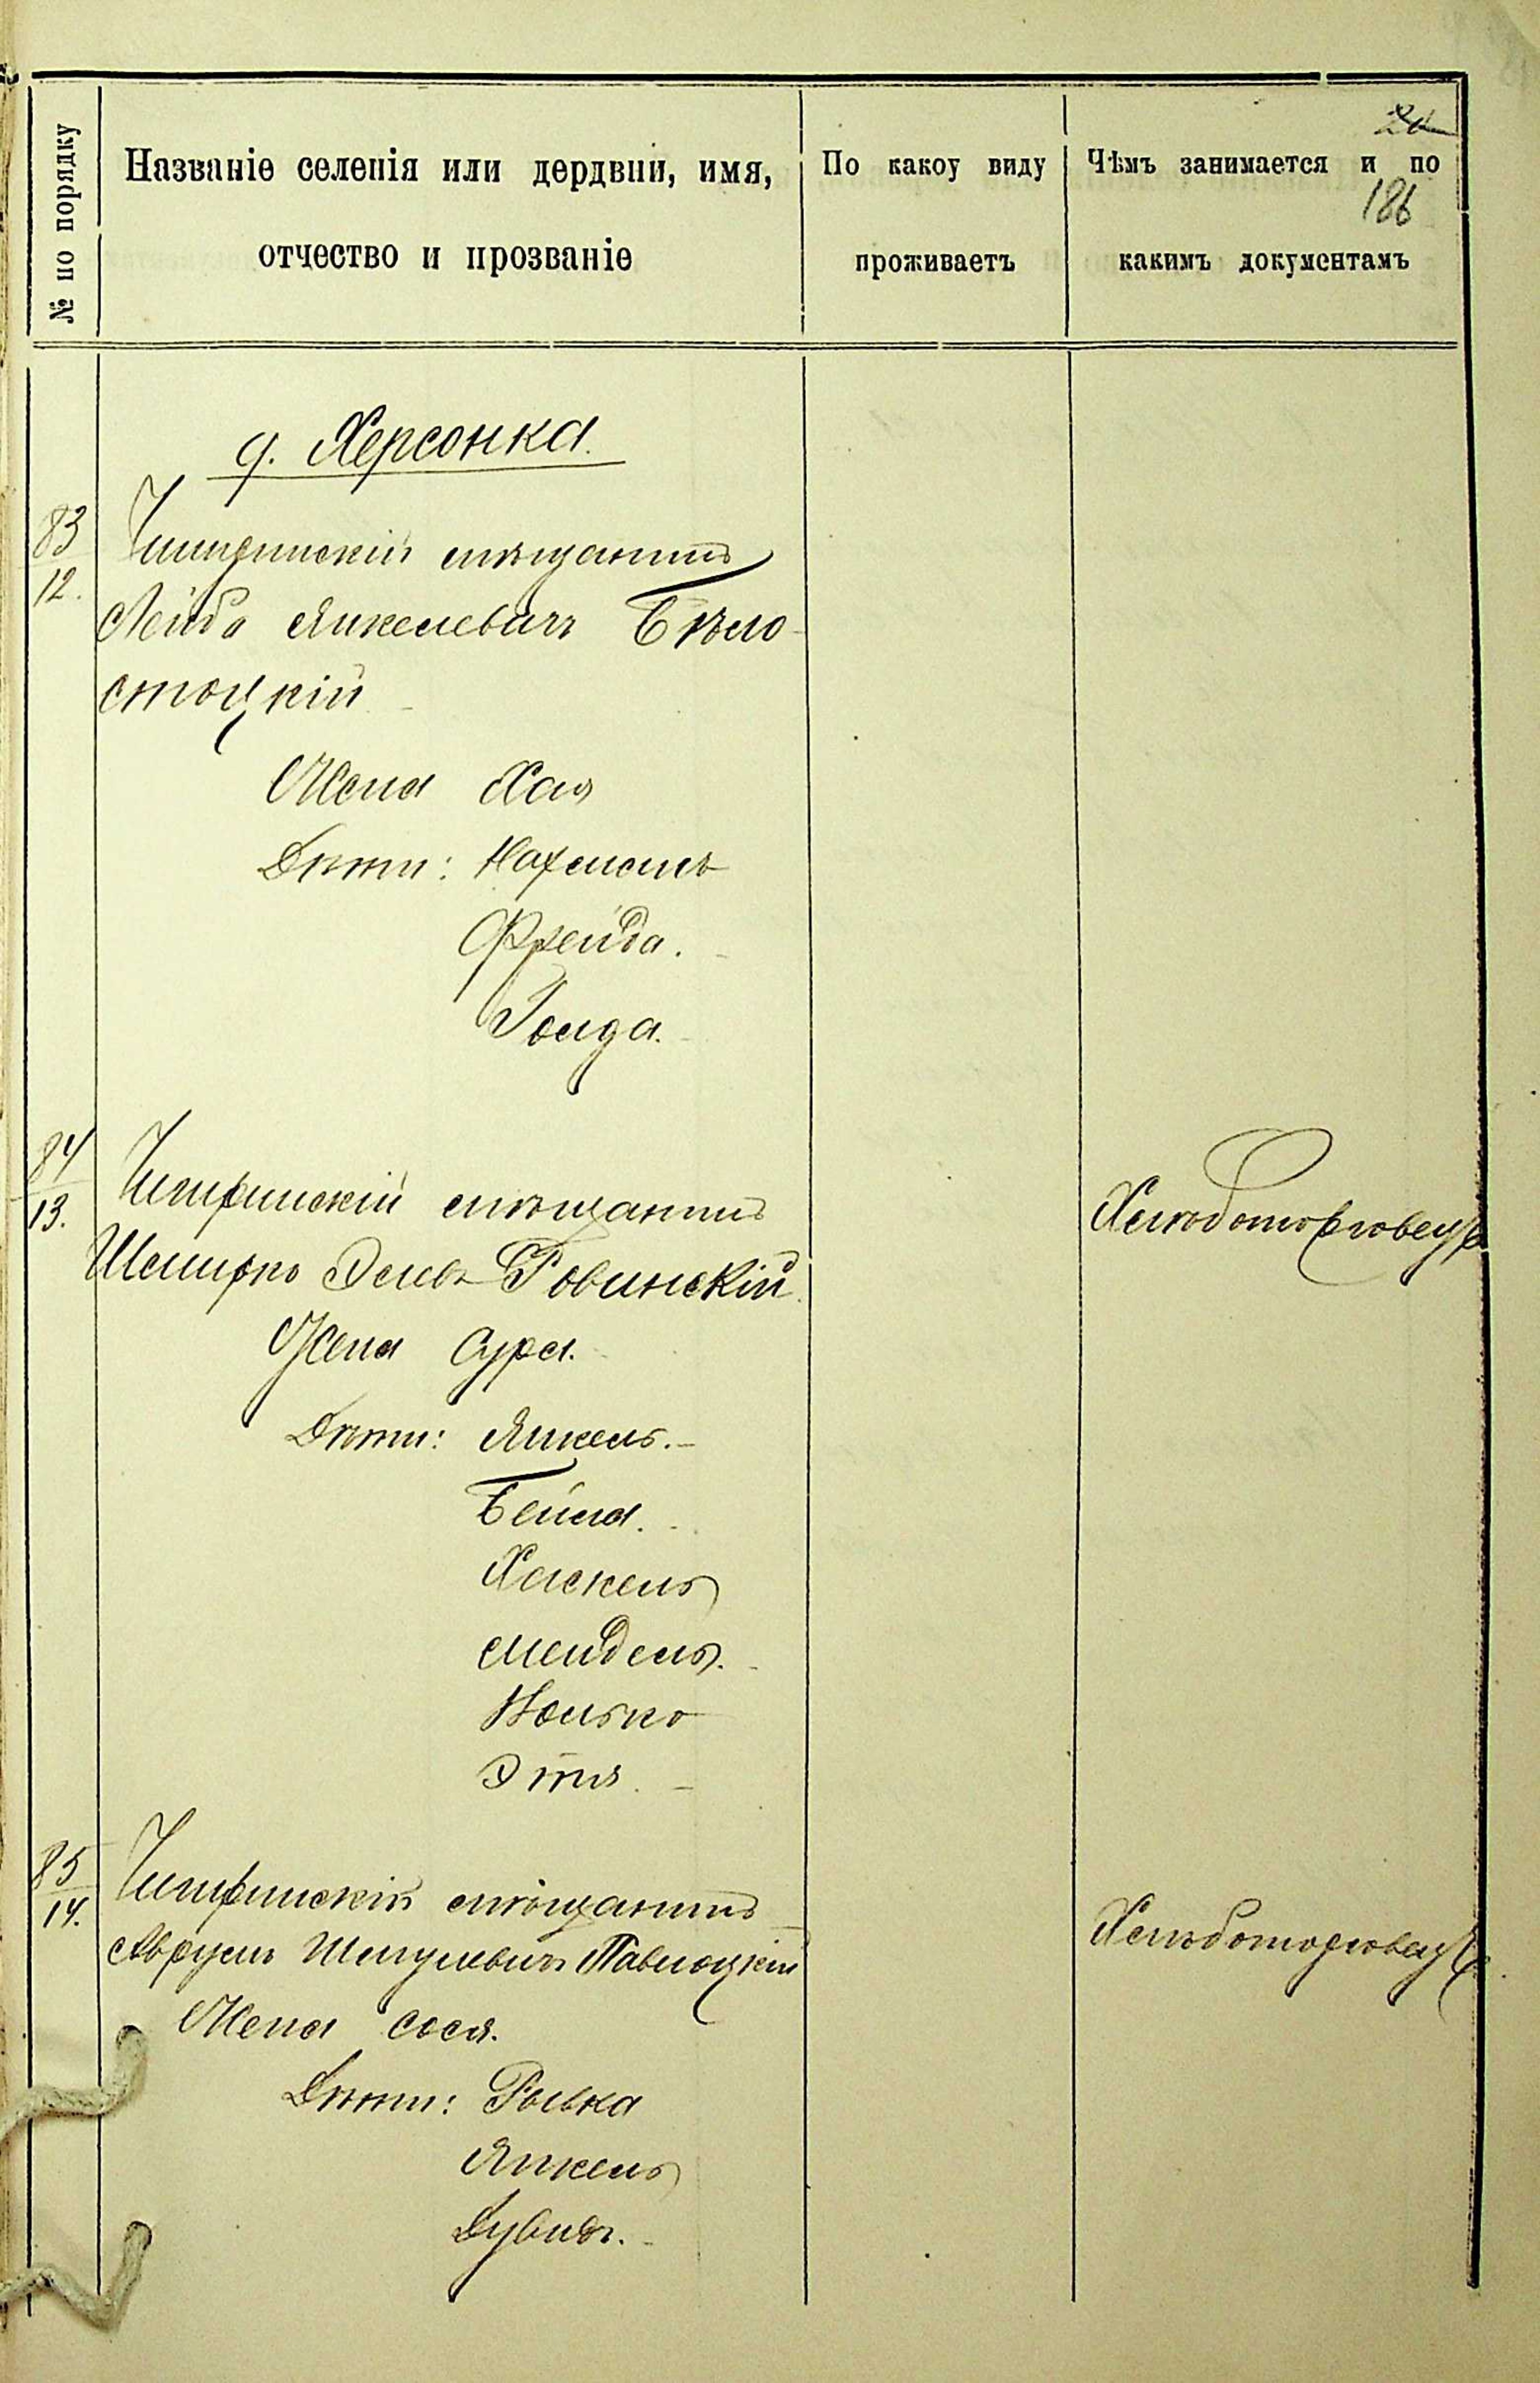 № по порядку
Названіе селенія или дердвни, имя,
отчество и прозваніе
По какоу виду
проживаетъ
Чѣмъ занимается и по
какимъ документамъ
20
186
д. Херсонка.
83
12.
Чигиринскій мѣщанинъ
Лейба Янкелевичъ Бѣло-
стоцкій
Жена Хая
Дѣти: Нахманъ
Фрейда.
Голда.
84
13.
Чигиринскій мѣщанинъ
Шмирко Элевъ Ровинскій
Жена Сура.
Дѣти: Янкель.
Бейла.
Хаскель
Мендель.
Волько
Этя.
Хлѣботорговецъ
85
14.
Чигиринскій мѣщанинъ
Аврумъ Шмулевичъ Павлоцкій
Жена Сося.
Дѣти: Ривка
Янкель
Дувидъ.
Хлѣботорговецъ